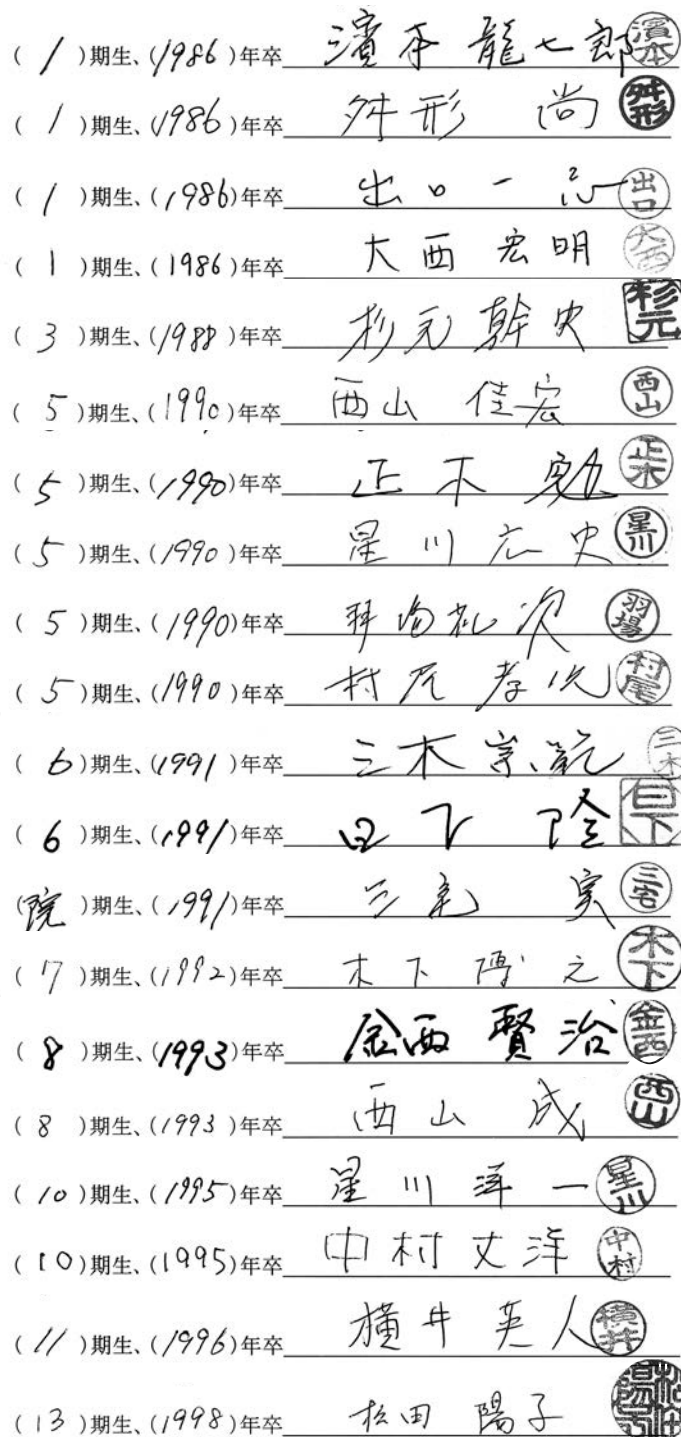 ( 1 )期生、(1986)年卒 濱本 龍七郎 濱本
( 1 )期生、(1986)年卒 舛形 尚 舛形
( 1 )期生、(1986)年卒 出口 一 出口
( 1 )期生、(1986)年卒 大西 宏明 大西
( 3 )期生、(1988)年卒 杉元 幹史 杉元
( 5 )期生、(1990)年卒 西山 佳宏 西山
( 5 )期生、(1990)年卒 正木 勉 正木
( 5 )期生、(1990)年卒 星川 広史 星川
( 5 )期生、(1990)年卒 羽場礼次 羽場
( 5 )期生、(1990)年卒 村尾 孝 村尾
( 6 )期生、(1991)年卒 三木崇範 三木
( 6 )期生、(1991)年卒 日下 隆 日下
(院)期生、(1991)年卒 三宅 実 三宅
( 7 )期生、(1992)年卒 木下 博之 木下
( 8 )期生、(1993)年卒 金西 賢治 金西
( 8 )期生、(1993)年卒 西山 成 西山
( 10 )期生、(1995)年卒 星川 洋一 星川
( 10 )期生、(1995)年卒 中村 丈洋 中村
( 11 )期生、(1996)年卒 横井 英人 横井
( 13 )期生、(1998)年卒 松田 陽子